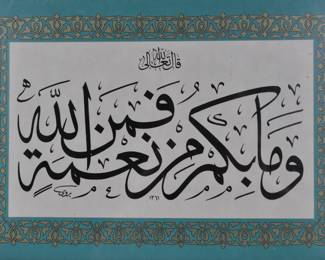 قال الله تعالى
وما بكم من نعمة فمن الله